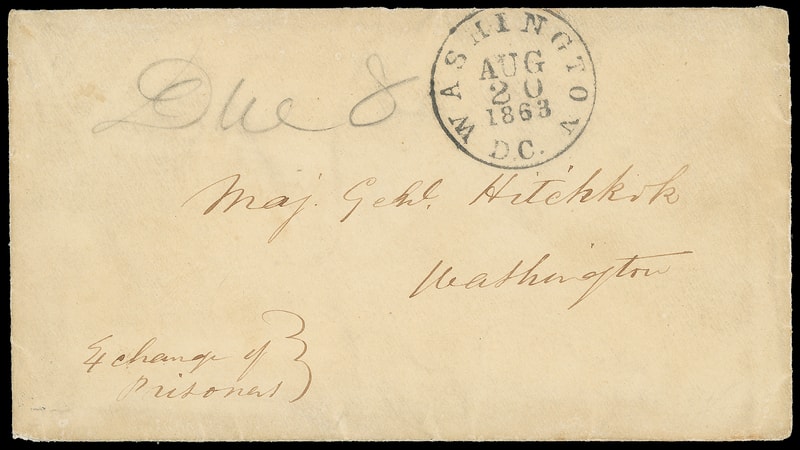 Due 8
WASHINGTON
AUG
20
1863
D.C.
Maj. Genl. Hitchkok
Washington
Exchange of
Prisoners